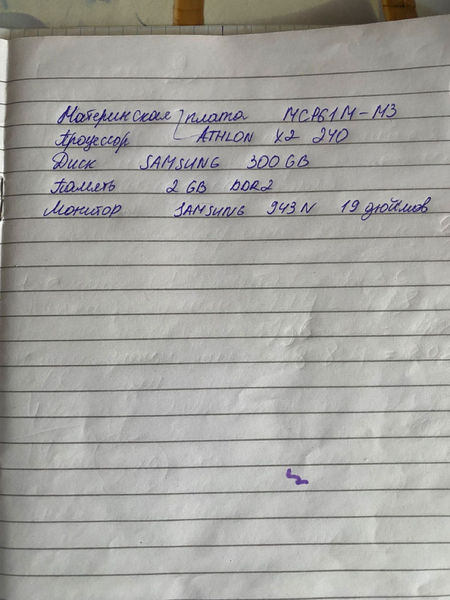 Материнская плата MCP61M-M3
Процессор ATHLON X2 240
Диск SAMSUNG 300 GB
Память 2 GB DDR2
Монитор SAMSUNG 943N 19 дюймов